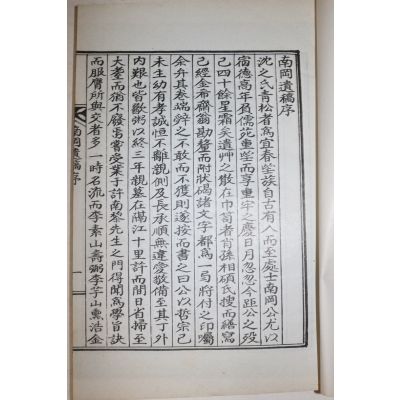 南岡遺稿序
沈之氏青松者爲宜春望族自古有人而至處士南岡公尤以
宿德高年負儒苑重望而尊重字之慶日月忽忽今距公之歿
已四十餘星霜矣遺艸之散在巾笥者肖孫相碩氏搜而繕寫
已經金希齋翁勘釐而附狀碣諸文字都爲一局將付之印屬
余弁其卷端辭之不敢而不獲則遂按而書之曰公以哲宗己
未生幼有孝誠恒不離親側及長承順無違愛敬備至其丁外
內艱也皆歠粥以終三年親墓在隔江十里許而間日省掃至
大耋而猶不廢焉嘗受業于許南黎先生之門得聞爲學旨訣
而服膺所與交者多一時名流而李素山壽弼李芋山熏浩金
南岡遺稿序
一